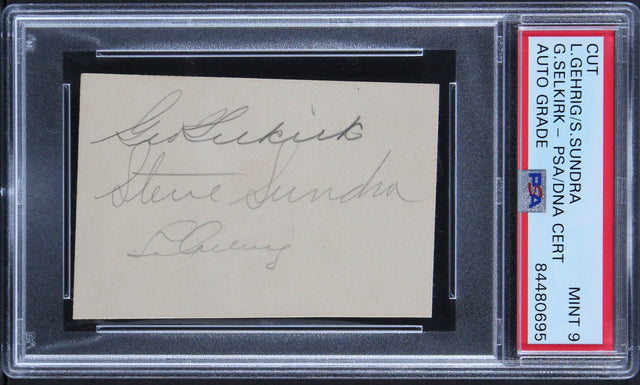 Geo Selkirk
Steve Sundra
L. Gehrig
CUT
L.GEHRIG/S.SUNDRA
G.SELKIRK - PSA/DNA CERT
AUTO GRADE
MINT 9
PSA
84480695